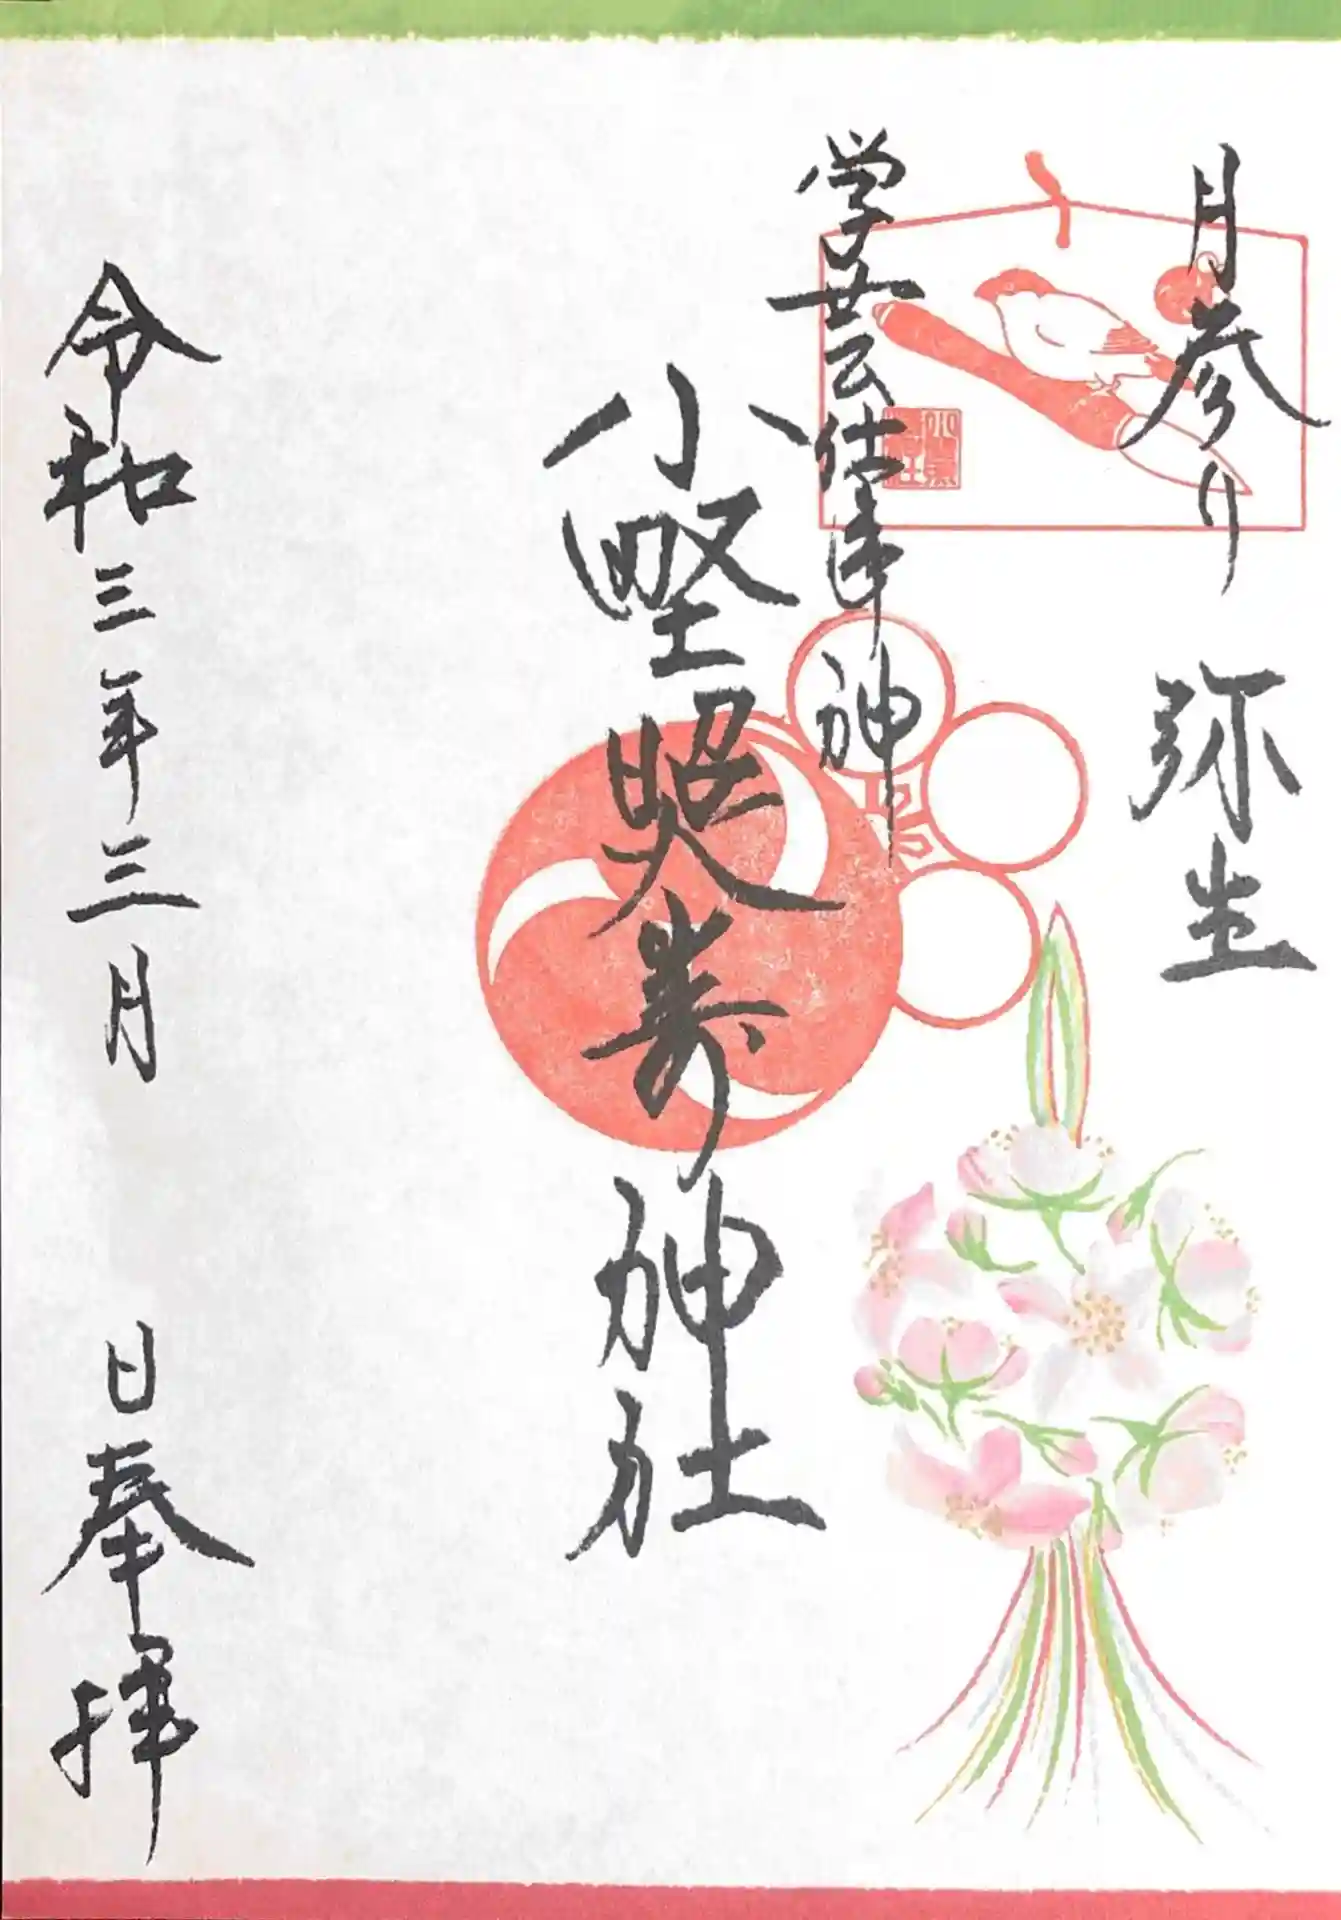 月参り 弥生
学芸仕事神
小野照嵜神社
令和三年三月 日奉拝